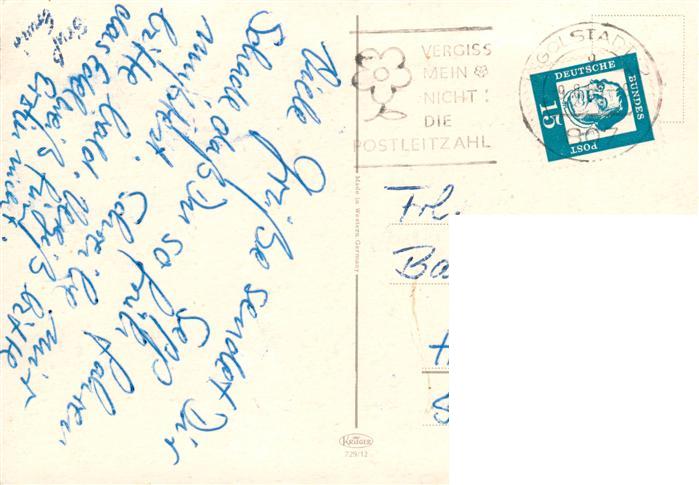 Viele Grüße sendet Dir
Sepp
Schade daß Du so früh fahren
mußtest. Schreibe mir
bitte bald. Vergiß bitte
das Edelweiß für
nicht.
Gruß
VERGISS
MEIN
NICHT!
DIE
POSTLEITZAHL
INGOLSTADT
DEUTSCHE
BUNDES
POST
15
Made in Western Germany
Frl.
Ba
KRÜGER
729/12